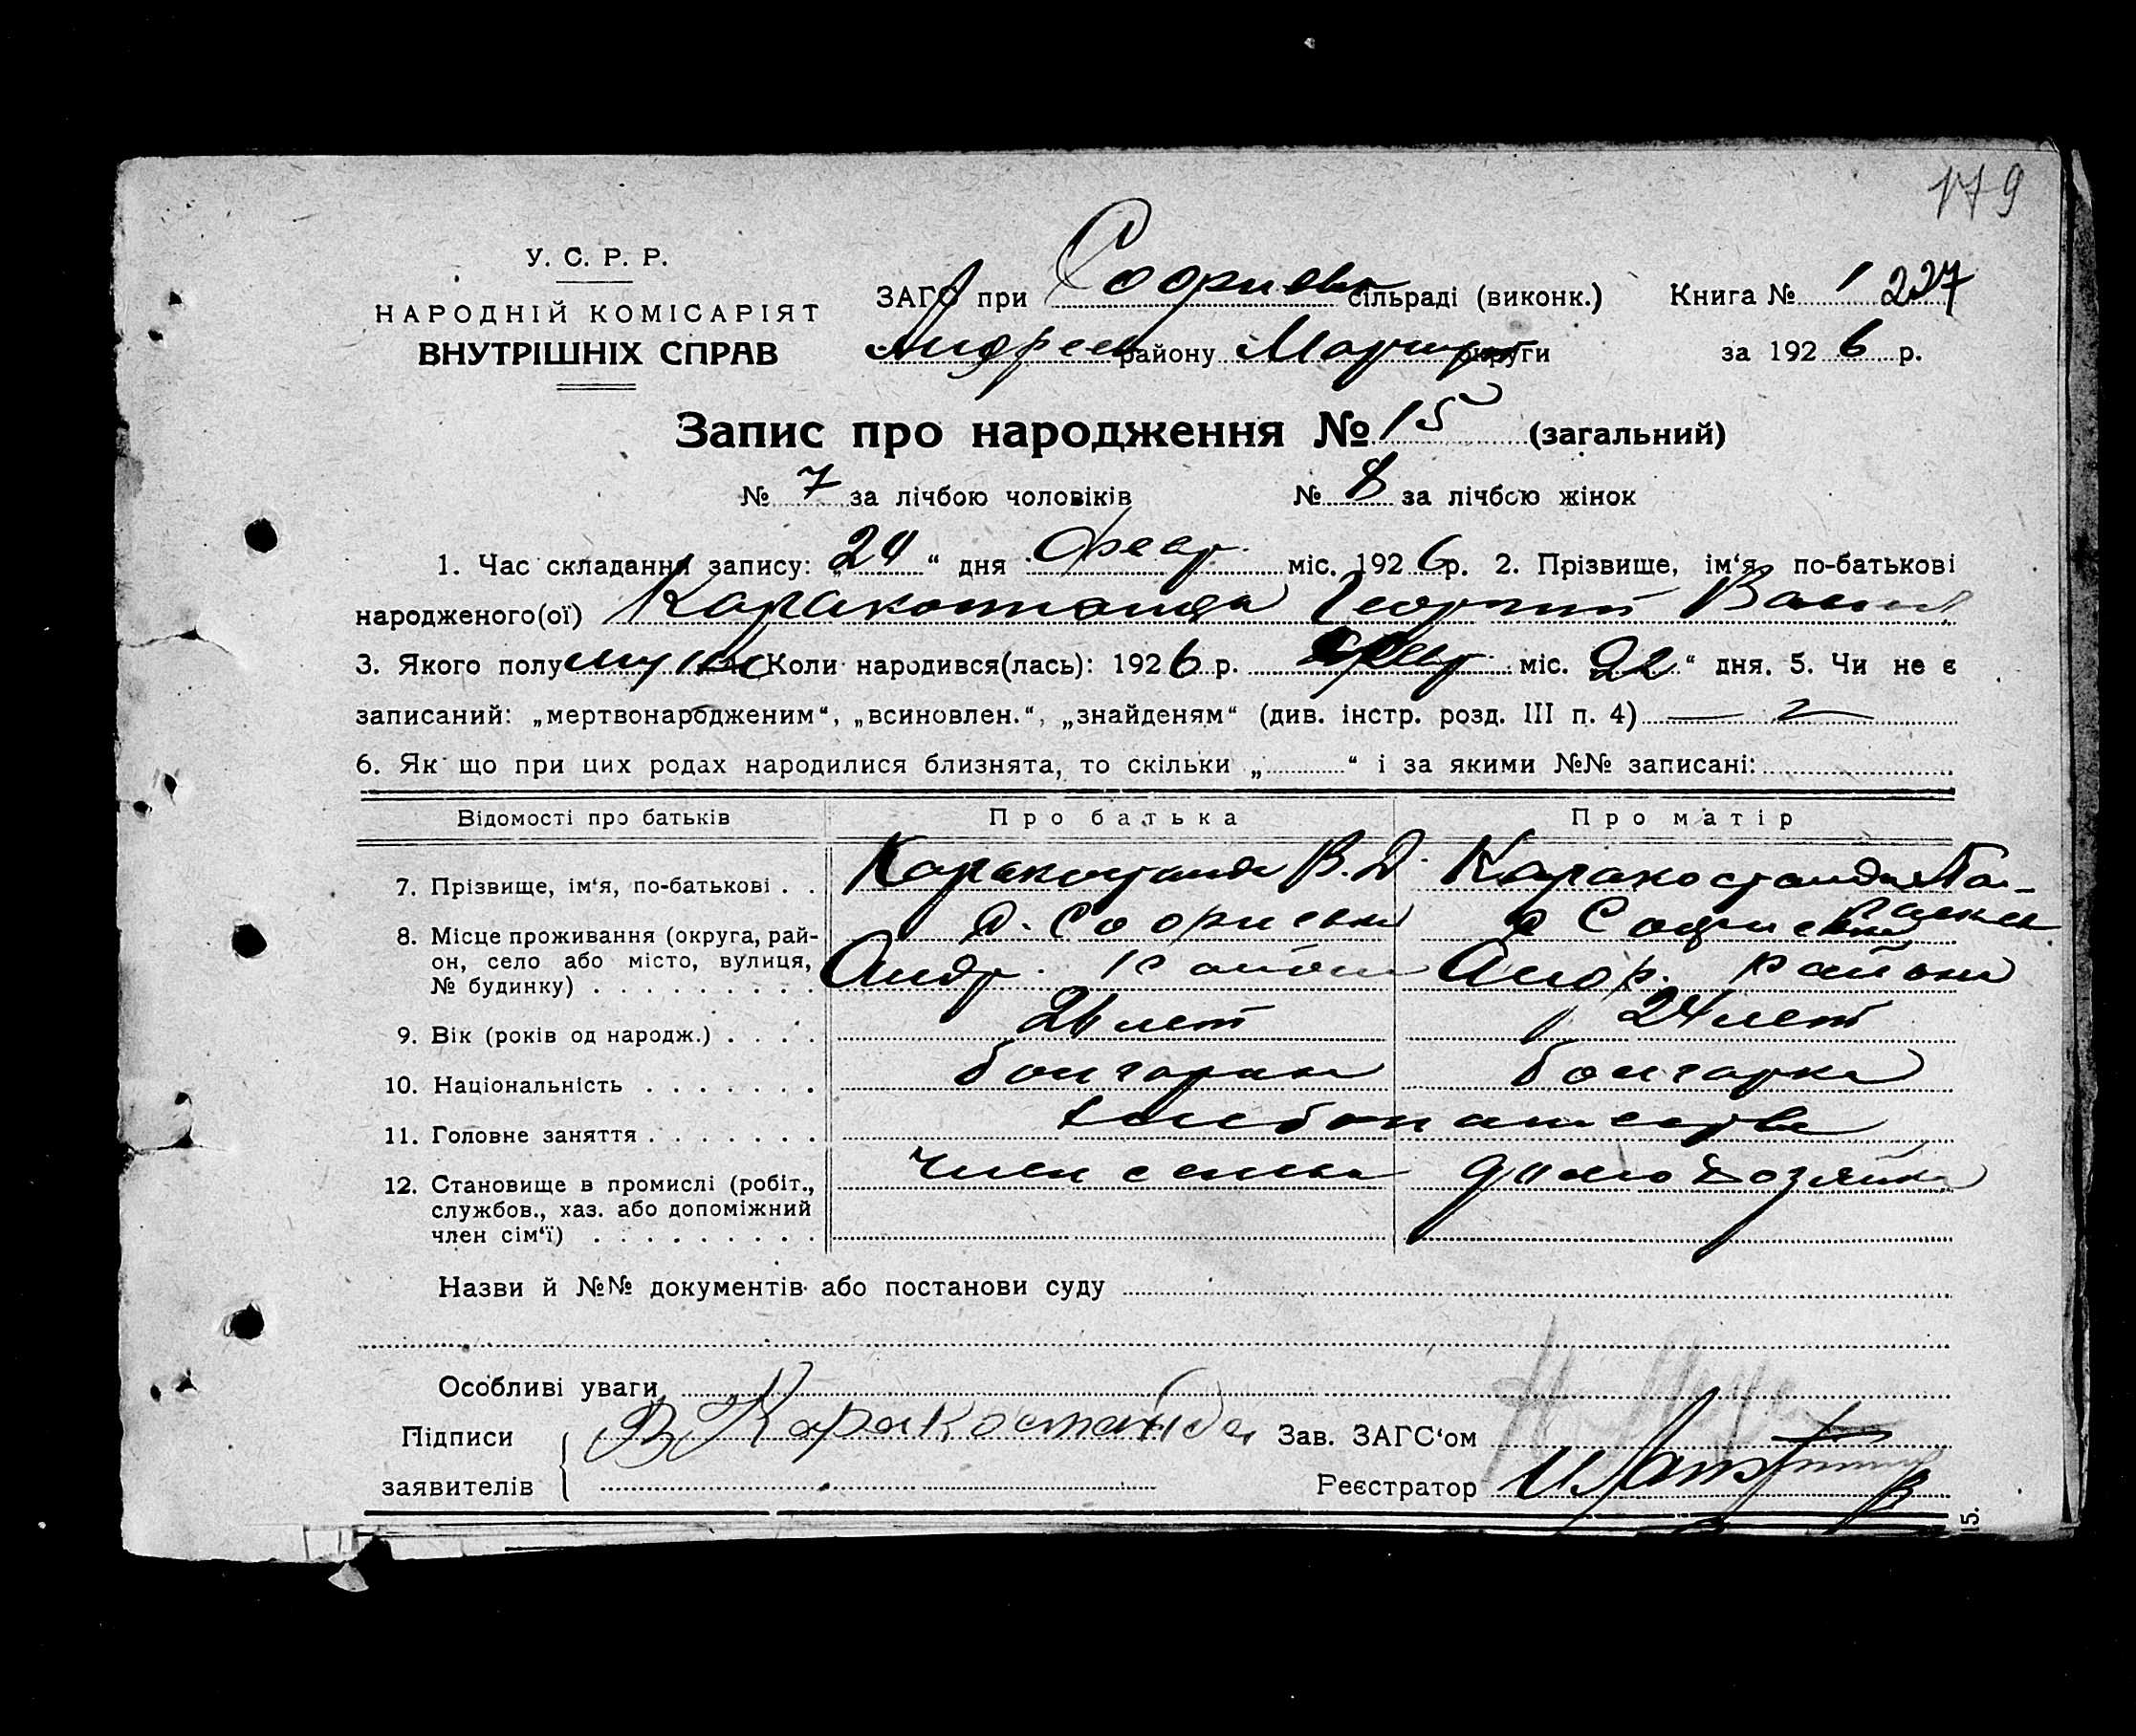 179
У. С. Р. Р.
НАРОДНІЙ КОМІСАРІЯТ
ВНУТРІШНІХ СПРАВ
ЗАГС при Софиевк сільраді (виконк.) Книга № 1 227
Андреев району Мариуп округи за 1926 р.
Запис про народження № 15 (загальний)
№ 7 за лічбою чоловіків № 8 за лічбою жінок
1. Час складання запису: „24“ дня февр. міс. 1926 р. 2. Прізвище, ім‘я, по-батькові
народженого(ої) Каракостанда Георгий Васил
3. Якого полу муж Коли народився(лась): 1926 р. февр. міс. 22“ дня. 5. Чи не є
записаний: „мертвонародженим“, „всиновлен.“, „знайденям“ (див. інстр. розд. III п. 4)
6. Як що при цих родах народилися близнята, то скільки „ “ і за якими №№ записані:
Відомості про батьків Про батька Про матір
7. Прізвище, ім‘я, по-батькові . . Каракостанда В. Д. Каракостанда
8. Місце проживання (округа, рай- с. Софиевка с Софиевка
он, село або місто, вулиця, Андр. района Андр. района
№ будинку) . . . . . . . . .
9. Вік (років од народж.) . . . . 26 лет 24 лет
10. Національність . . . . . . . болгарин болгарка
11. Головне заняття . . . . . . . хлебопашество
12. Становище в промислі (робіт., член семьи домохозяйка
службов., хаз. або допоміжний
член сім‘ї) . . . . . . . . .
Назви й №№ документів або постанови суду
Особливі уваги
Підписи В Каракостанда Зав. ЗАГС‘ом
заявителів Реєстратор